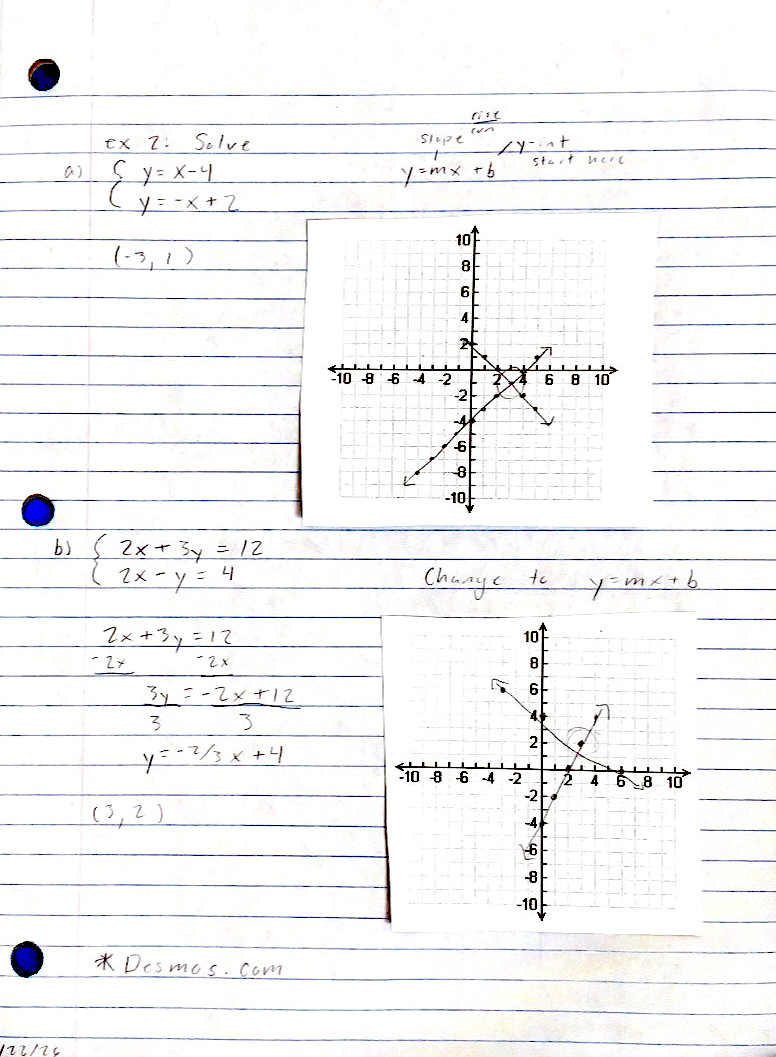 rise
run
Ex 2: Solve
slope
y-int
start here
a) { y = x - 4
y = mx + b
{ y = -x + 2
(-3, 1)
10
8
6
4
2
-10 -8 -6 -4 -2 2 4 6 8 10
-2
-4
-6
-8
-10
b) { 2x + 3y = 12
{ 2x - y = 4
Change to y = mx + b
2x + 3y = 12
-2x -2x
3y = -2x + 12
3 3
y = -2/3 x + 4
(3, 2)
10
8
6
4
2
-10 -8 -6 -4 -2 2 4 6 8 10
-2
-4
-6
-8
-10
* Desmos.com
/22/26